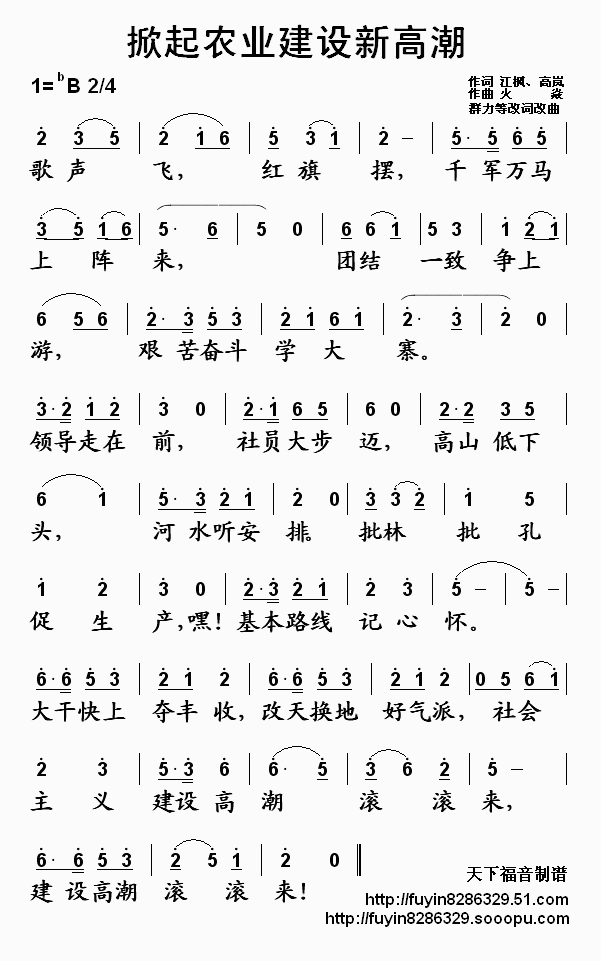 掀起农业建设新高潮
1=ᵇB 2/4
作词 江枫、高岚
作曲 火 焱
群力等改词改曲
2 3 5 | 2 1 6 | 5 3 1 | 2 – | 5· 5 6 5
歌声 飞, 红旗 摆, 千 军万马
3 5 1 6 | 5· 6 | 5 0 | 6 6 1 | 5 3 | 1 2 1
上 阵 来, 团结 一致 争上
6 5 6 | 2· 3 5 3 | 2 1 6 1 | 2· 3 | 2 0
游, 艰 苦奋斗 学 大 寨。
3·2 1 2 | 3 0 | 2·1 6 5 | 6 0 | 2·2 3 5
领导走在 前, 社员大步 迈, 高山 低下
6 1 | 5· 3 2 1 | 2 0 | 3 3 2 | 1 5
头, 河 水听安 排。 批林 批 孔
1 2 | 3 0 | 2·3 2 1 | 2 3 | 5 – | 5 –
促 生 产,嘿! 基本路线 记 心 怀。
6·6 5 3 | 2 1 2 | 6·6 5 3 | 2 1 2 | 0 5 6 1
大干快上 夺丰 收,改天换地 好气派, 社会
2 3 | 5·3 6 | 6· 5 | 3 6 2 | 5 –
主 义 建设 高 潮 滚 滚 来,
6· 6 5 3 | 2 5 1 | 2 0 ‖
建 设高潮 滚 滚 来!
天下福音制谱
http://fuyin8286329.51.com/
http://fuyin8286329.sooopu.com/